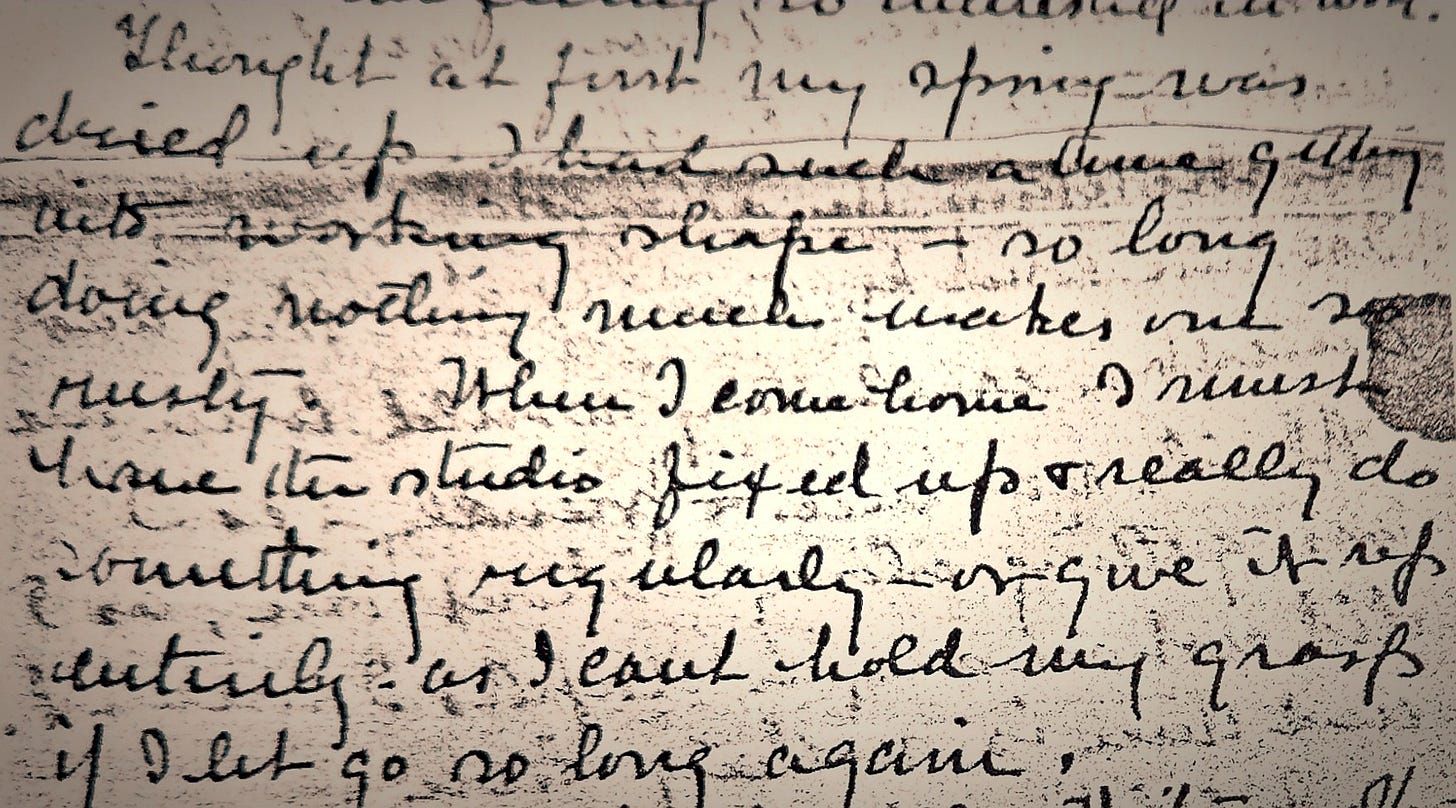 no interest in work.
Thought at first my spring was
dried up. I had such a time getting
into working shape - so long
doing nothing much makes one so
rusty. When I come home I must
have the studio fixed up & really do
something regularly - or give it up
entirely - as I cant hold my grasp
if I let go so long again.